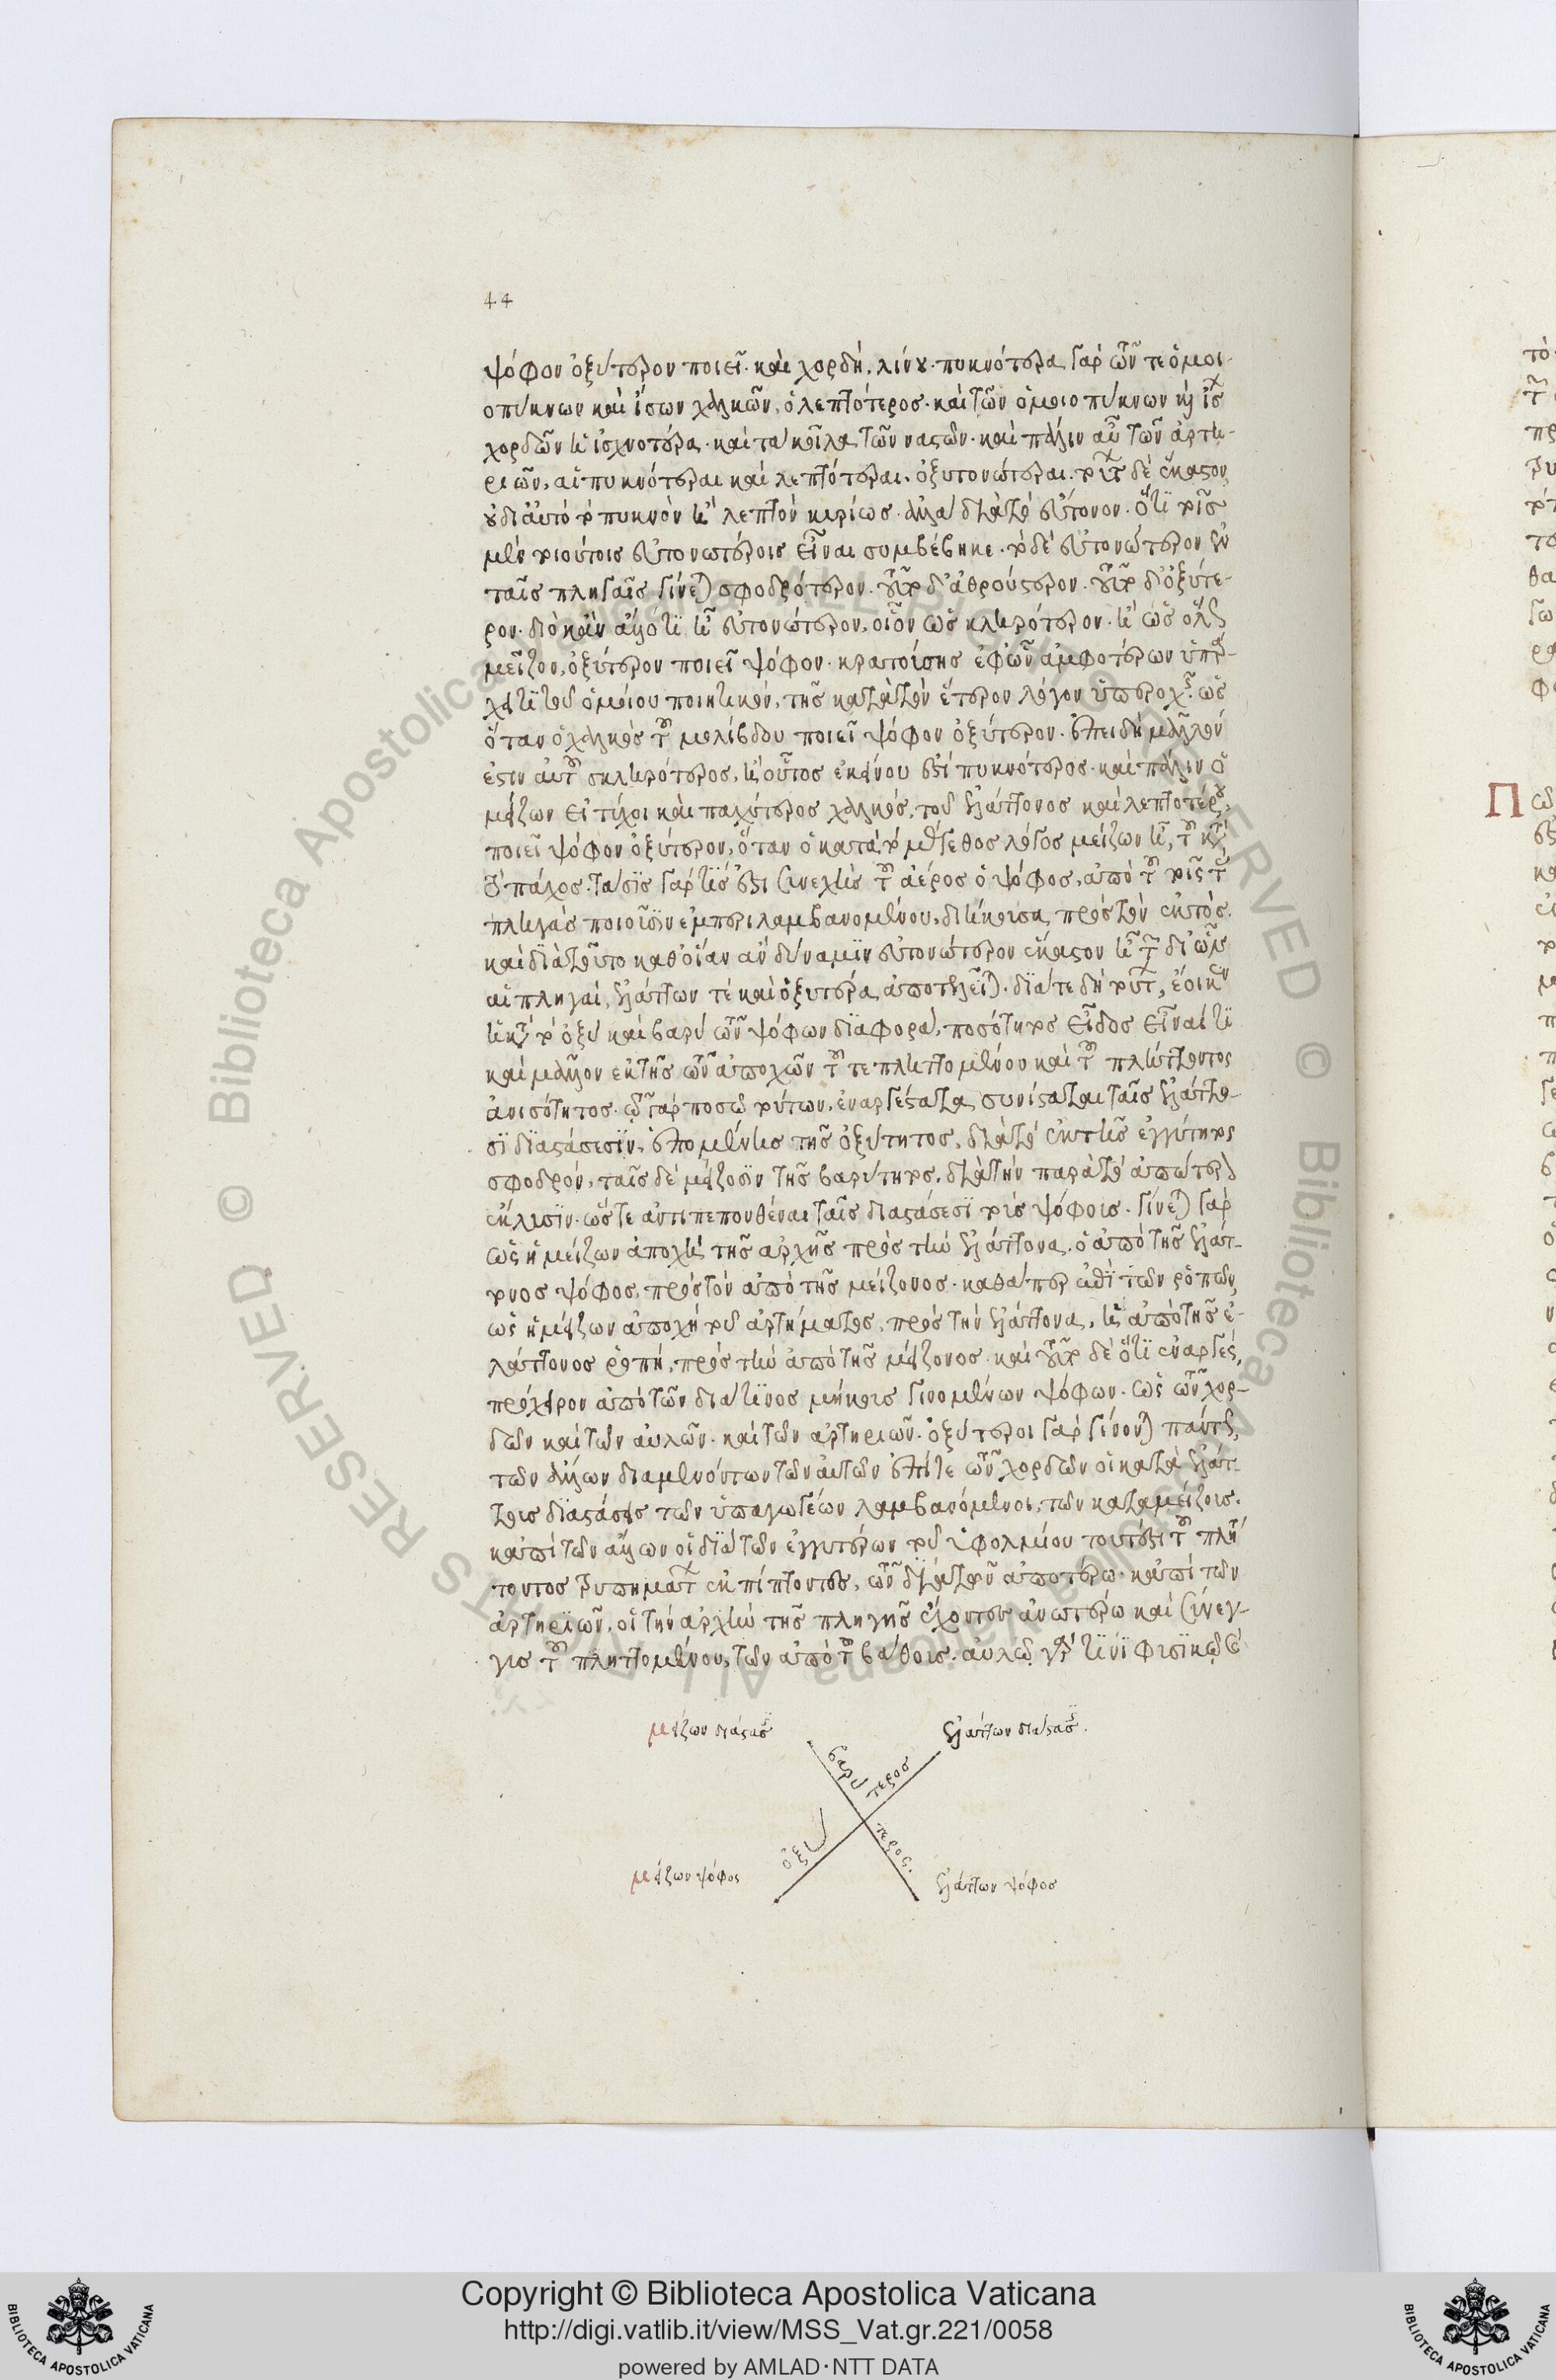 44
ψόφον ὀξύτερον ποιεῖ. καὶ χορδὴ, λίνου. πυκνότερα γὰρ τῶν τε ὁμοι-
οπύκνων καὶ ἴσων χαλκῶν, ὁ λεπτότερος. καὶ τῶν ὁμοιοπύκνων καὶ ἴσ
χορδῶν ἡ ἰσχνοτέρα. καὶ τὰ κοῖλα τῶν ναστῶν. καὶ πάλιν αὖ τῶν ἀρτη-
ριῶν, αἱ πυκνότεραι καὶ λεπτότεραι, ὀξυτονώτεραι. τούτ δὲ ἕκαστον
οὐ δι αὐτὸ τὸ πυκνὸν ἢ λεπτὸν κυρίως. ἀλλὰ διὰ τὸ εὔτονον. ὅτι τοῖς
μὲν τοιούτοις εὐτονωτέροις εἶναι συμβέβηκε. τὸ δὲ εὐτονώτερον ἐν
ταῖς πληγαῖς γίνεται σφοδρότερον. τοῦτο δ' ἀθρούστερον. τοῦτο δ' ὀξύτε-
ρον. διὸ κἂν ἄλλό τι ἦ εὐτονώτερον, οἷον ὡς κληρότερον. ἢ ὡς ὅλως
μεῖζον, ὀξύτερον ποιεῖ ψόφον. κρατούσης ἐφ' ὧν ἀμφοτέρων ὑπάρ-
χει τι τοῦ ὁμοίου ποιητικόν, τῆς κατὰ τὸν ἕτερον λόγον ὑπεροχῆς. ὡς
ὅταν ὁ χαλκὸς τοῦ μολίβδου ποιεῖ ψόφον ὀξύτερον. ἐπειδὴ μᾶλλόν
ἐστιν αὐτοῦ σκληρότερος, ἢ οὗτος ἐκείνου ἐστὶ πυκνότερος. καὶ πάλιν ὁ
μείζων εἰ τύχοι καὶ παχύτερος χαλκός, τοῦ ἐλάττονος καὶ λεπτοτέρου,
ποιεῖ ψόφον ὀξύτερον, ὅταν ὁ κατὰ τὸ μέγεθος λόγος μείζων ἦ, τοῦ κατὰ
τὸ πάχος. τάσις γάρ τίς ἐστι συνεχὴς τοῦ ἀέρος ὁ ψόφος, ἀπὸ τοῦ τοῖς τὰς
πληγὰς ποιοῦσιν ἐμπεριλαμβανομένου, διήκουσα πρὸς τὸν ἐκτός.
καὶ διὰ τοῦτο καθ' οἵαν ἂν δύναμιν εὐτονώτερον ἕκαστον ἦ τ δι ὧν
αἱ πληγαί, ἐλάττων τὲ καὶ ὀξυτέρα ἀποτελεῖται. διά τε δὴ τοῦτ, ἔοικεν
ἡ κατὰ τὸ ὀξὺ καὶ βαρὺ τῶν ψόφων διαφορὰ, ποσότητος εἶδος εἶναί τι
καὶ μᾶλλον ἐκ τῆς τῶν ἀποχῶν τοῦ τε πληττομένου καὶ τοῦ πλήττοντος
ἀνισότητος. τῷ γὰρ ποσῷ τούτων, ἐναργέστατα συνίσταται ταῖς ἐλάττο-
σι διαστάσεσιν, ἑπομένης τῆς ὀξύτητος, διὰ τὸ ἐκ τῆς ἐγγύτητος
σφοδρόν, ταῖς δὲ μείζοσιν τῆς βαρύτητος, διὰ τὴν παρὰ τὸ ἀπώτερον
ἔκλυσιν. ὥστε ἀντιπεπονθέναι ταῖς διαστάσεσι τοὺς ψόφοις. γίνεται γὰρ
ὡς ἡ μείζων ἀποχὴ τῆς ἀρχῆς πρὸς τὴν ἐλάττονα, ὁ ἀπὸ τῆς ἐλάτ-
τονος ψόφος, πρὸς τὸν ἀπὸ τῆς μείζονος. καθάπερ ἐπὶ τῶν ῥοπῶν,
ὡς ἡ μείζων ἀποχὴ τοῦ ἀρτήματος, πρὸς τὴν ἐλάττονα, ἡ ἀπὸ τῆς ἐ-
λάττονος ῥοπή, πρὸς τὴν ἀπὸ τῆς μείζονος. καὶ τοῦτο δὲ ὅτι ἐναργές,
πρόχειρον ἀπὸ τῶν διά τινος μήκους γινομένων ψόφων. ὡς τῶν χορ-
δῶν καὶ τῶν αὐλῶν. καὶ τῶν ἀρτηριῶν. ὀξύτεροι γὰρ γίνονται πάντως,
τῶν ἄλλων διαμενόντων τῶν αὐτῶν ἐπί τε τῶν χορδῶν οἱ κατὰ ἐλάτ-
τους διαστάσεις τῶν ὑπαγωγέων λαμβανόμενοι, τῶν κατὰ μείζους.
κἀπὶ τῶν αὐλῶν οἱ διὰ τῶν ἐγγυτέρων τοῦ ὑφολμίου τουτέστι τοῦ πλήτ
τοντος τρυπημάτ ἐκπίπτοντες, τῶν διὰ τῶν ἀποτέρω. κἀπὶ τῶν
ἀρτηριῶν, οἱ τὴν ἀρχὴν τῆς πληγῆς ἔχοντες ἀνωτέρω καὶ σύνεγ-
γυς τοῦ πληττομένου, τῶν ἀπὸ τοῦ βάθους. αὐλῷ γάρ τινι φυσικῷ
μείζων διάστασις
ἐλάττων διάστασις.
βαρύ
τερος
ὀξύ
τερος.
μείζων ψόφος
ἐλάττων ψόφος
Copyright © Biblioteca Apostolica Vaticana
http://digi.vatlib.it/view/MSS_Vat.gr.221/0058
powered by AMLAD·NTT DATA